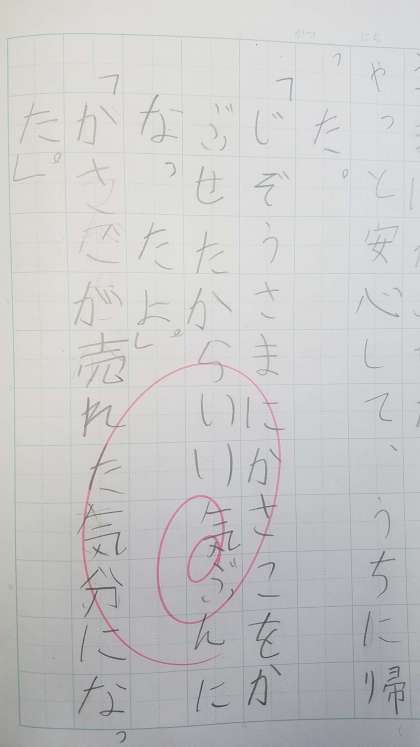 やっと安心して、うちに帰
った。
「じぞうさまにかさこをか
ぶせたからいい気ぶんに
なったよ。」
「かさこが売れた気分になっ
た。」